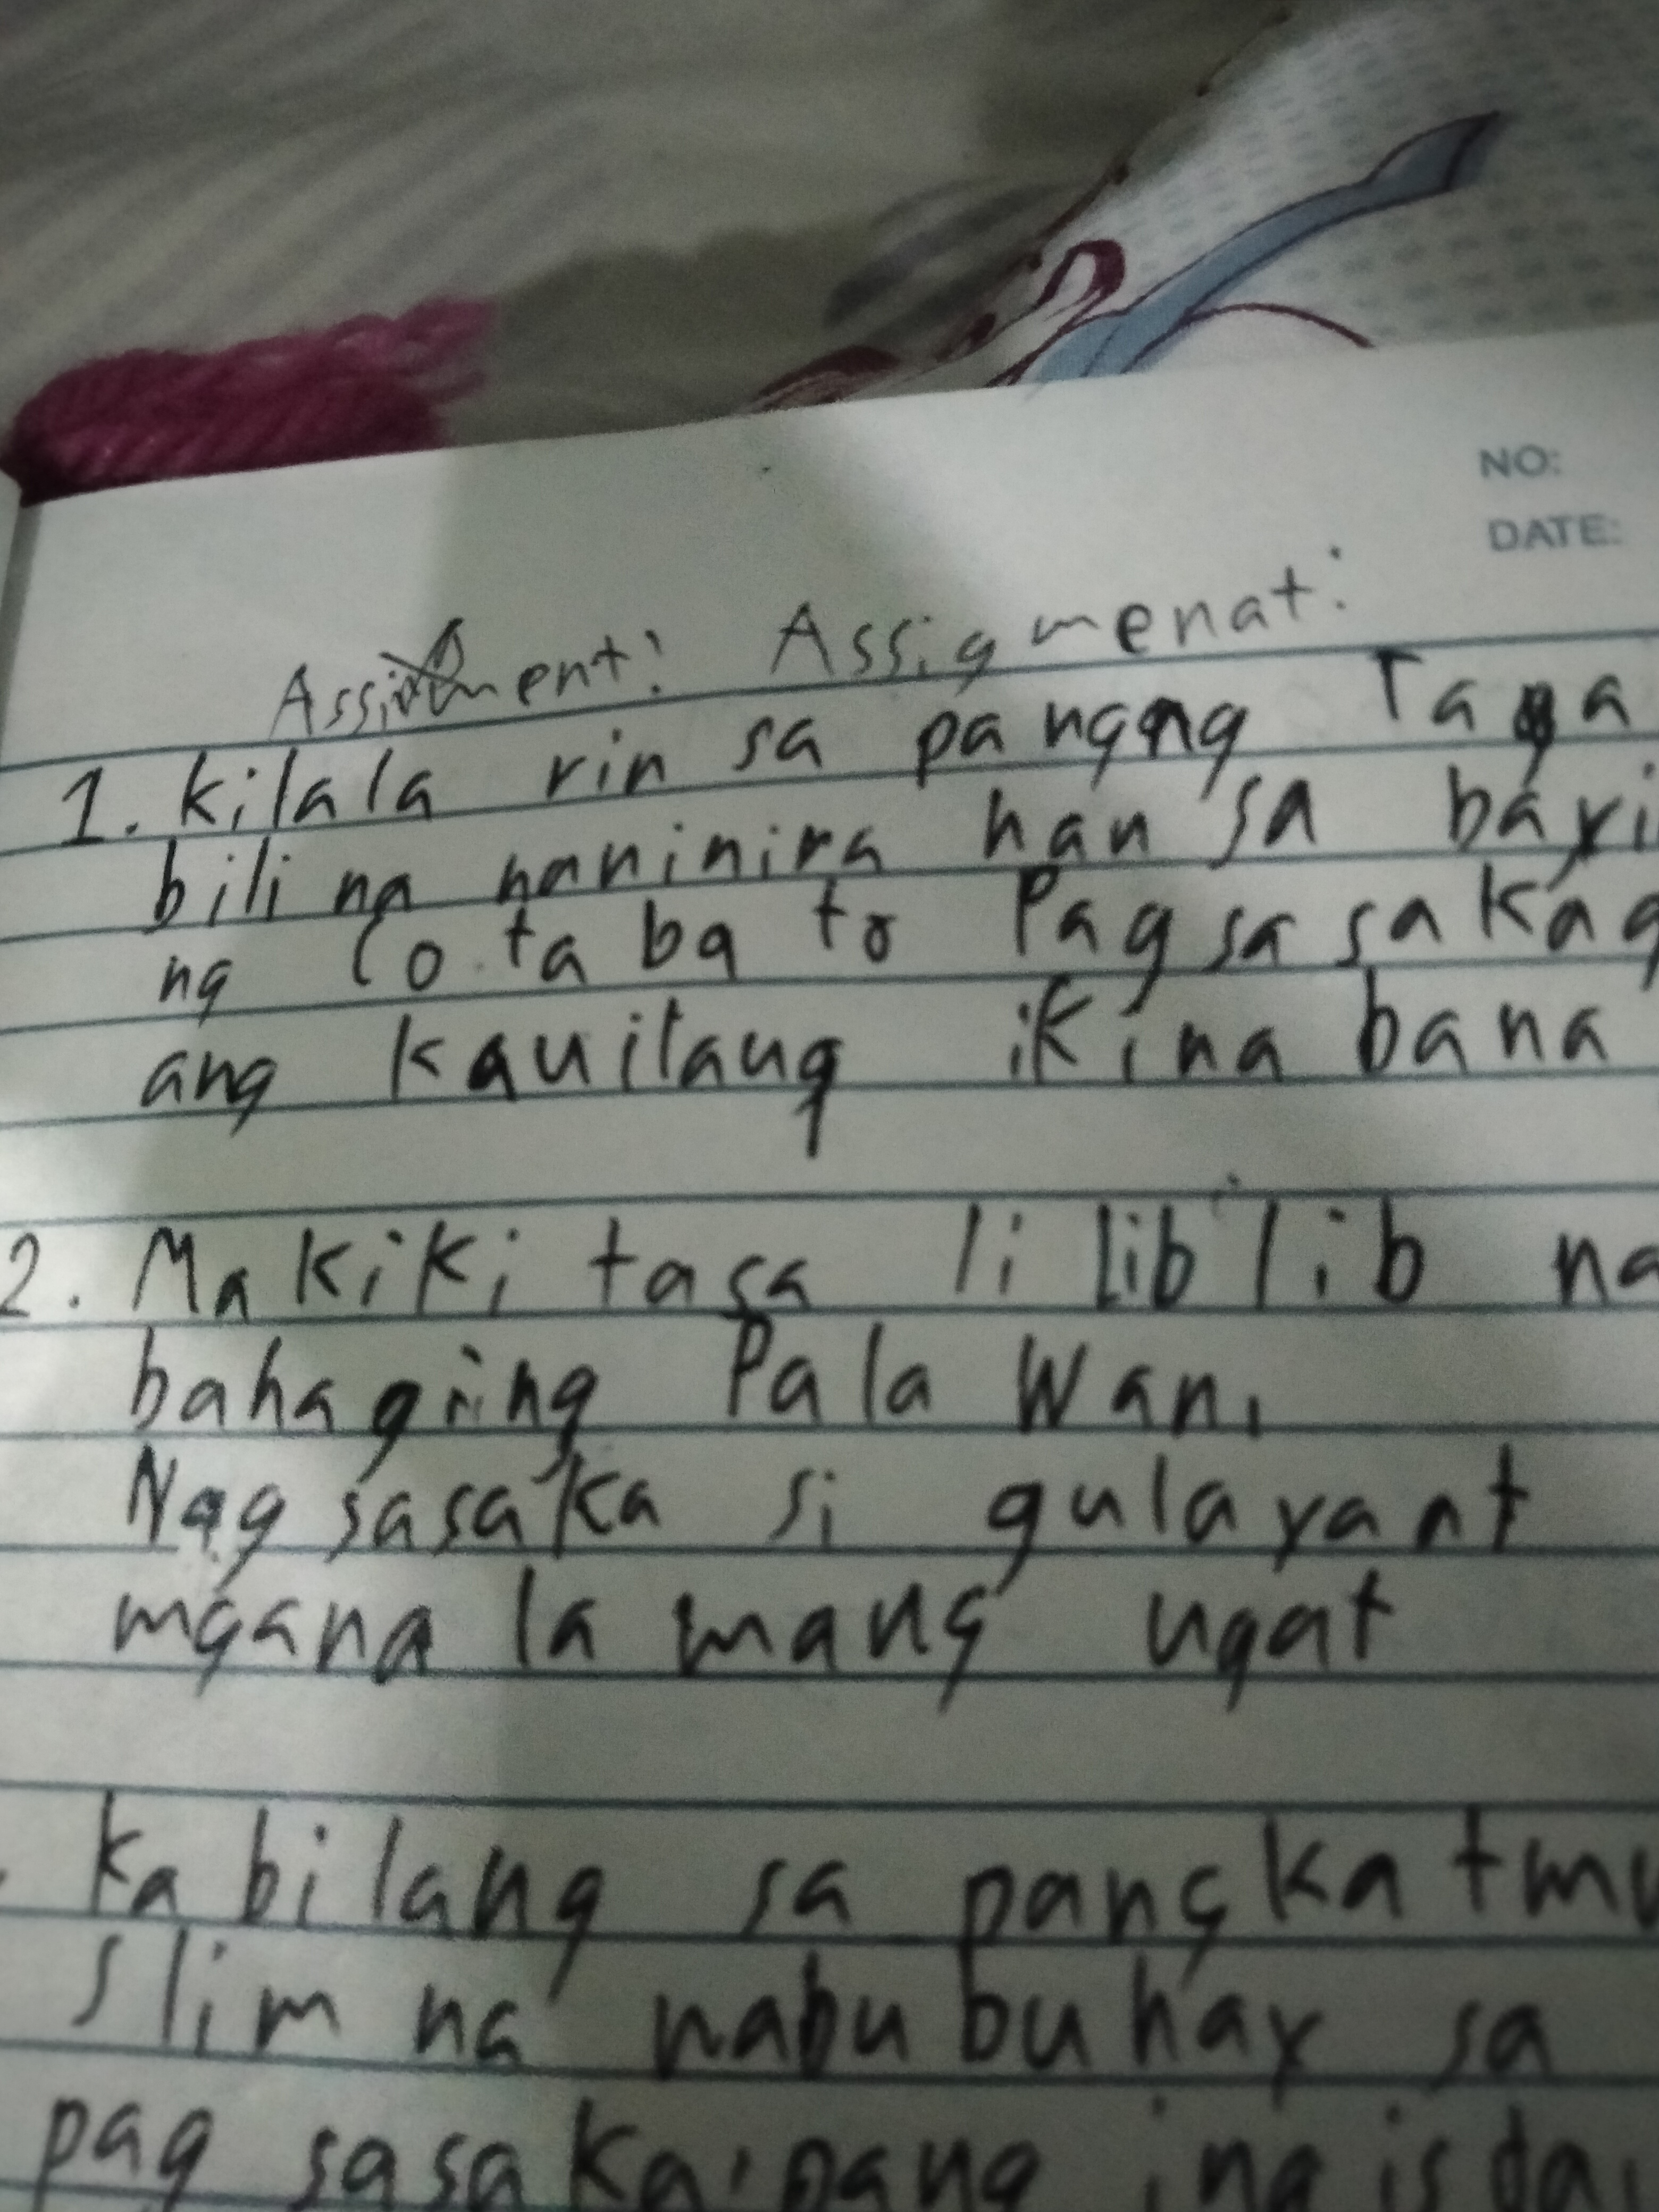 NO:
DATE:
Assigmenat:
1. kilala rin sa pangang Taga
bili na naninira han sa bayi
ng Cotabato Pagsasaka
ang kauilang ikina bana
2. Makiki tasa li lib lib na
bahaging Palawan,
Nagsasaka si gulayant
mgana la mang ugat
Kabilang sa pangkatmu
slim na nabubuhay sa
pag sasaka, pang ingisda,